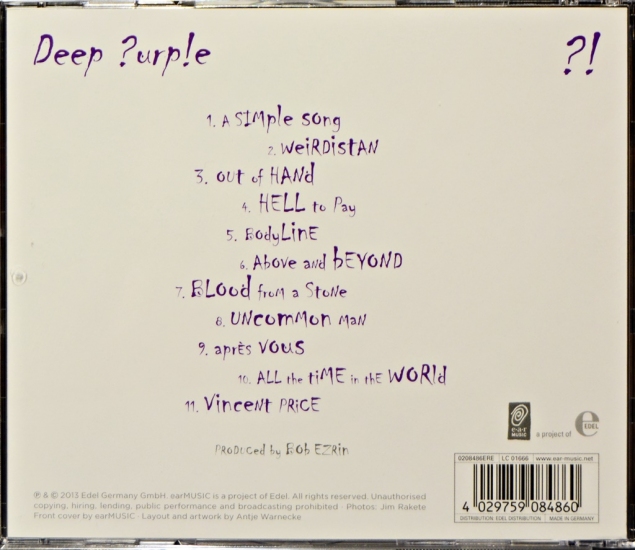 Deep ?urp!e
?!
1. A SIMple song
2. WeiRDistAN
3. out of HANd
4. HELL to Pay
5. BodyLinE
6. Above and bEYOND
7. BLood froM a StoNe
8. UNcomMon maN
9. après VOUS
10. ALL the tiME in thE WORld
11. VinceNt PRiCE
PRODUCEd by BOb EZRin
e·a·r
MUSIC
a project of
e
EDEL
0208486ERE LC 01666 www.ear-music.net
4 029759 084860
DISTRIBUTION: EDEL DISTRIBUTION MADE IN GERMANY
℗ & © 2013 Edel Germany GmbH. earMUSIC is a project of Edel. All rights reserved. Unauthorised
copying, hiring, lending, public performance and broadcasting prohibited · Photos: Jim Rakete
Front cover by earMUSIC · Layout and artwork by Antje Warnecke